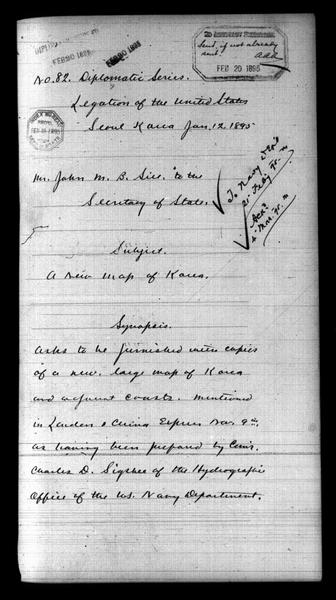 FEB 20 1895
Send, if not already
sent.
FEB 20 1895
No. 82. Diplomatic Series.
Legation of the United States
Seoul Korea Jan. 12, 1895
Mr. John M. B. Sill to the
Secretary of State.
To Navy
Subject.
A new map of Korea.
Synopsis.
Asks to be furnished with copies
of a new, large map of Korea
and adjacent coasts, mentioned
in London & China Express Nov. 9th,
as having been prepared by Com'r.
Charles D. Sigsbee of the Hydrographic
Office of the U.S. Navy Department.